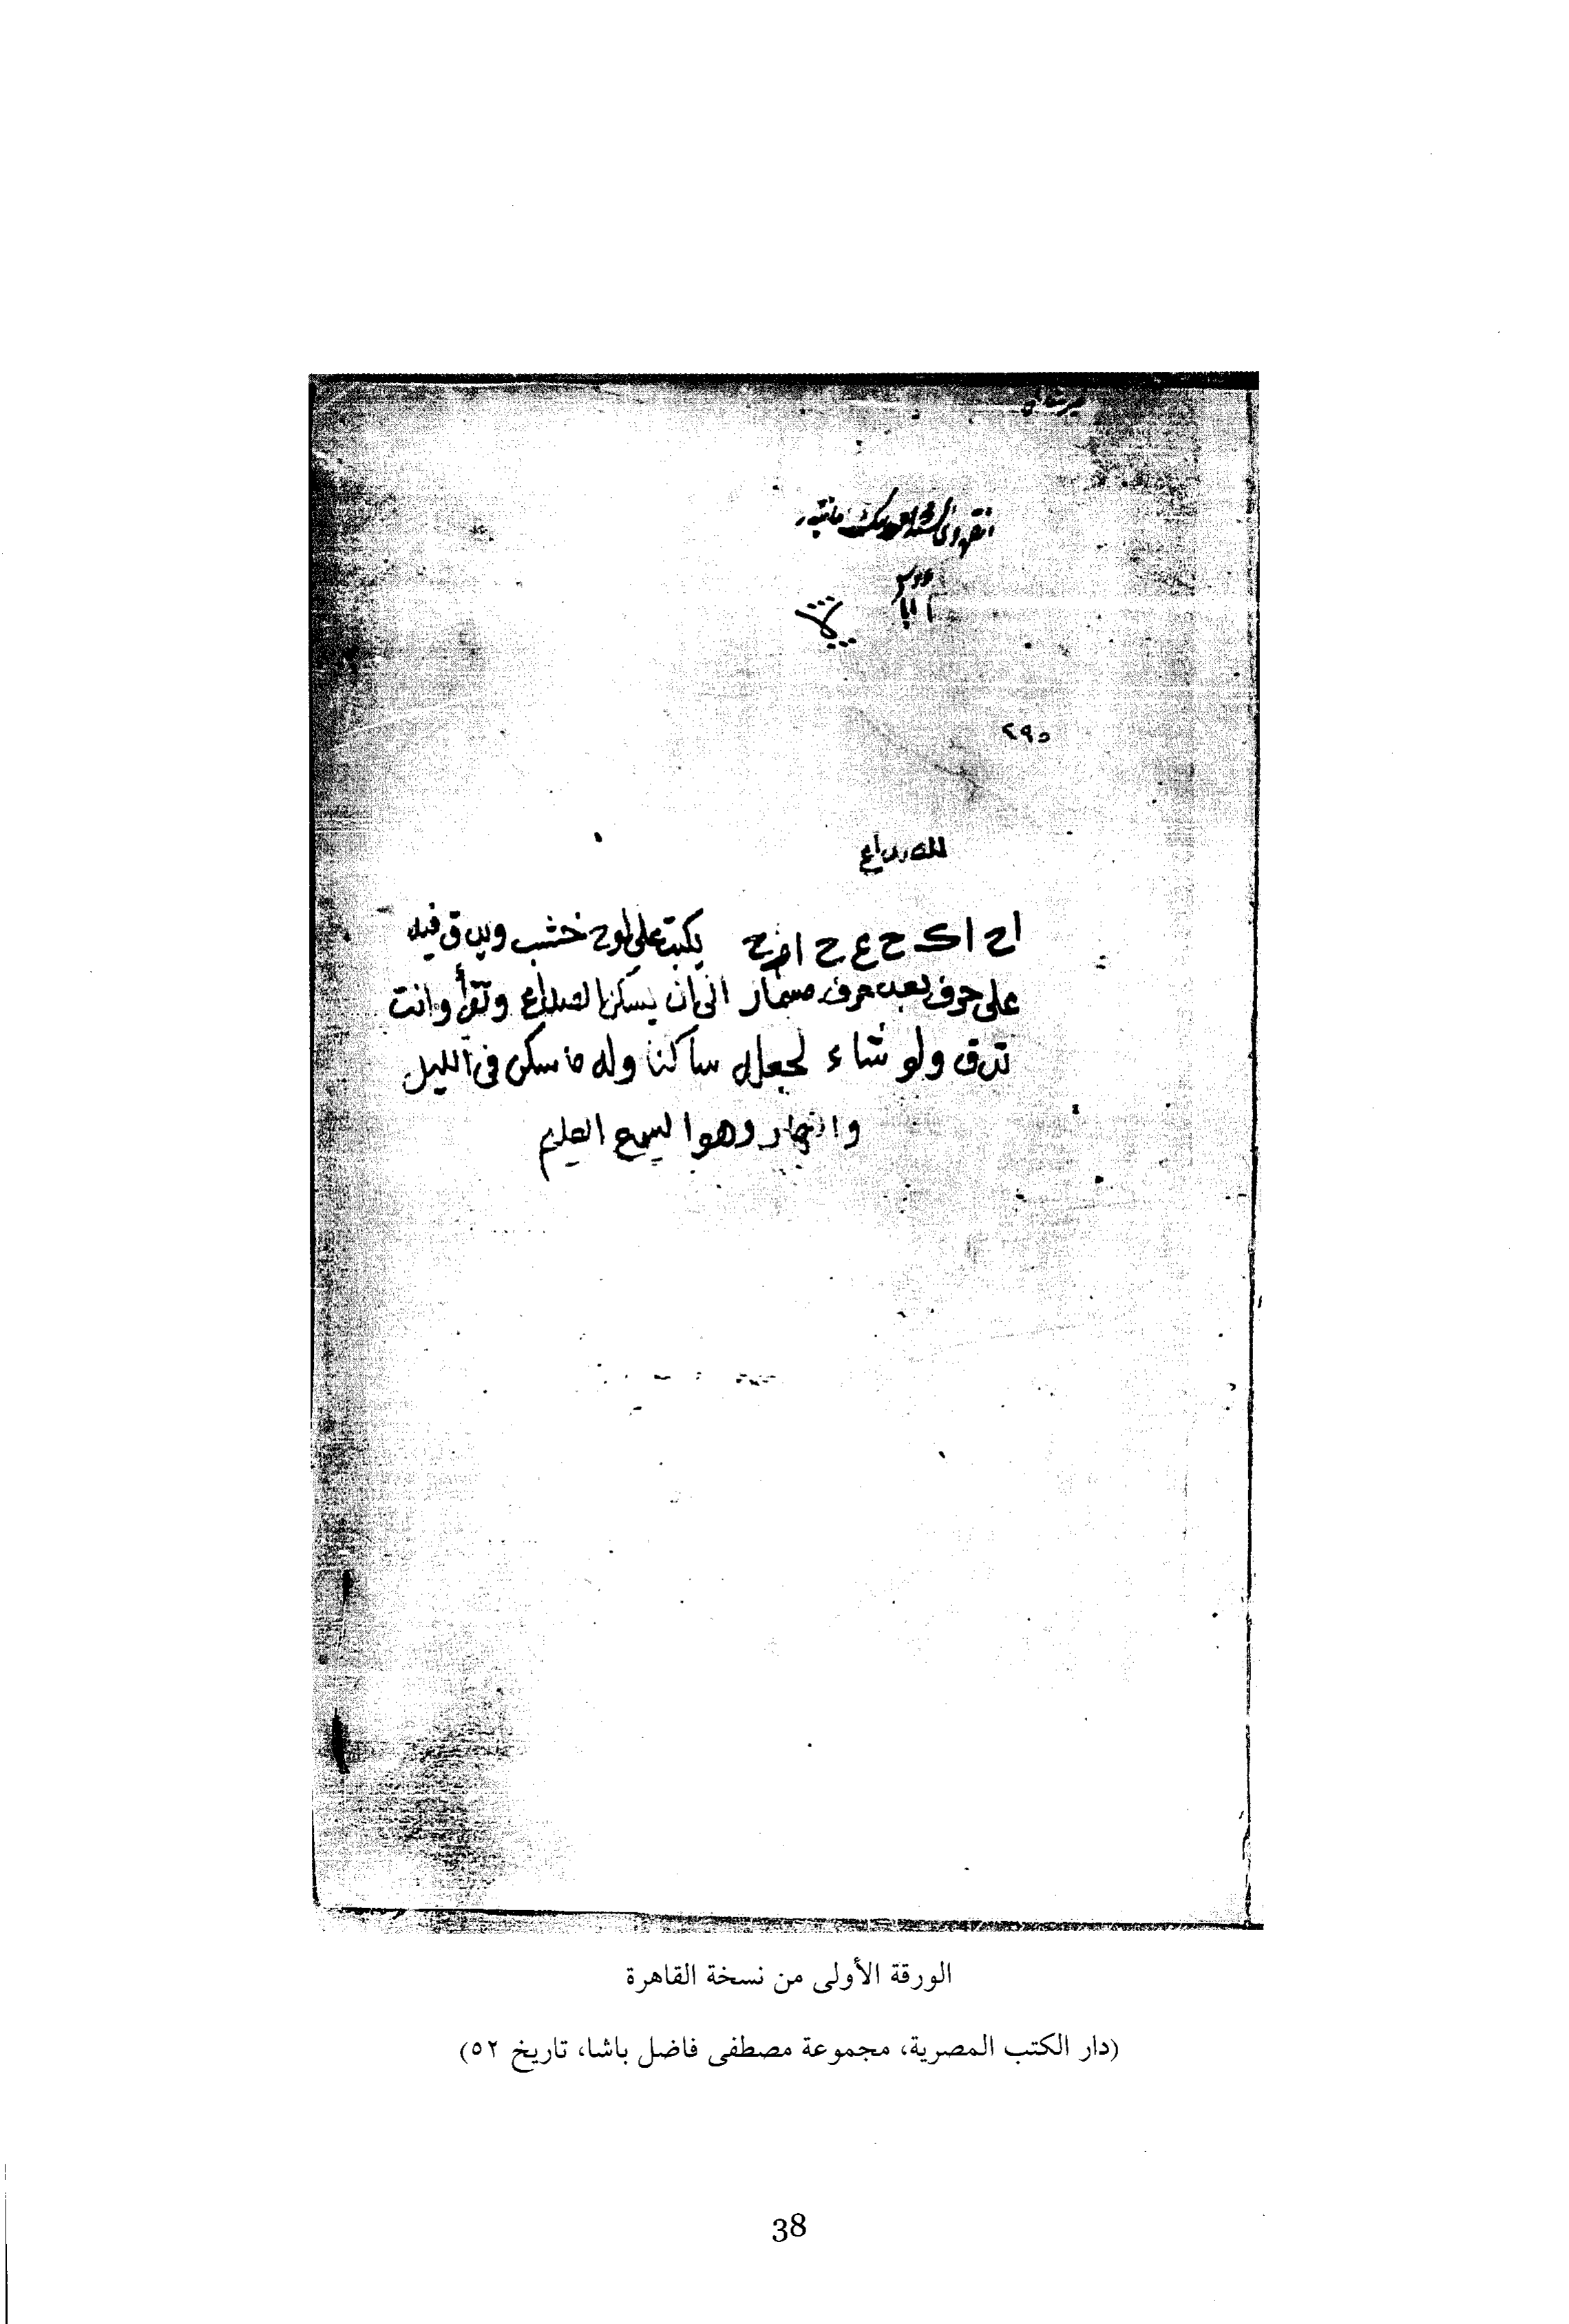 ٢٩٥
للصداع
اح اك ح ع ح ام ح يكتب على لوح خشب ويدق فيه
على حرف بعد حرف مسمار الى ان يسكن الصداع وتقرأ وانت
تدق ولو شاء لجعله ساكنا وله ما سكن في الليل
والنهار وهو السميع العليم
الورقة الأولى من نسخة القاهرة
(دار الكتب المصرية، مجموعة مصطفى فاضل باشا، تاريخ ٥٢)
38